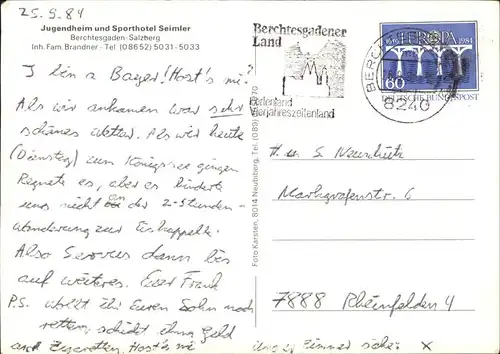 25.9.84
Jugendheim und Sporthotel Seimler
Berchtesgaden-Salzberg
Inh. Fam. Brandner - Tel. (08652) 5031-5033
I bin a Bayer! Host's mi?
Als wir ankamen war sehr
schönes Wetter. Als wir heute
(Dienstag) zum Königssee gingen
Regnete es, aber es hinderte
uns nicht an der 2-Stunden-
wanderung zur Eiskappelle.
Also Servus dann bis
auf weiteres. Euer Frank
P.S. wollt ihr Euren Sohn noch
retten, schickt ihm Geld
und Zigaretten. Host's mi
Foto Karsten, 8014 Neubiberg, Tel. (089)
Berchtesgadener
Land
Ferienland
Vierjahreszeitenland
8240
EUROPA
1984
60
DEUTSCHE BUNDESPOST
H. u. S.
Markgrafenstr. 6
7888 Rheinfelden 4